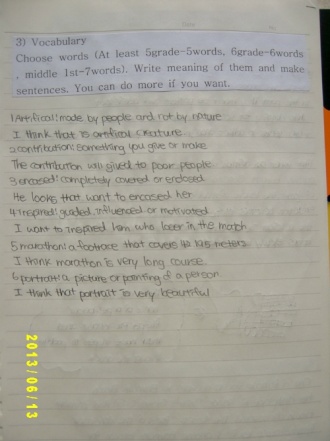 3) Vocabulary
Choose words (At least 5grade-5words, 6grade-6words
, middle 1st-7words). Write meaning of them and make
sentences. You can do more if you want.
1.Artifical: made by people and not by nature
I think that is artifical creature
2.contribution: something you give or make
The contribution will gived to poor people.
3.encased: completely covered or enclosed
He looks that want to encased her
4.inspired: guided, influenced or motivated
I want to inspired him who loser in the match
5.marathon: a footrace that covers
I think marathon is very long course.
6.portrait: a picture or painting of a person
I think that portrait is very beautiful
2013/06/13